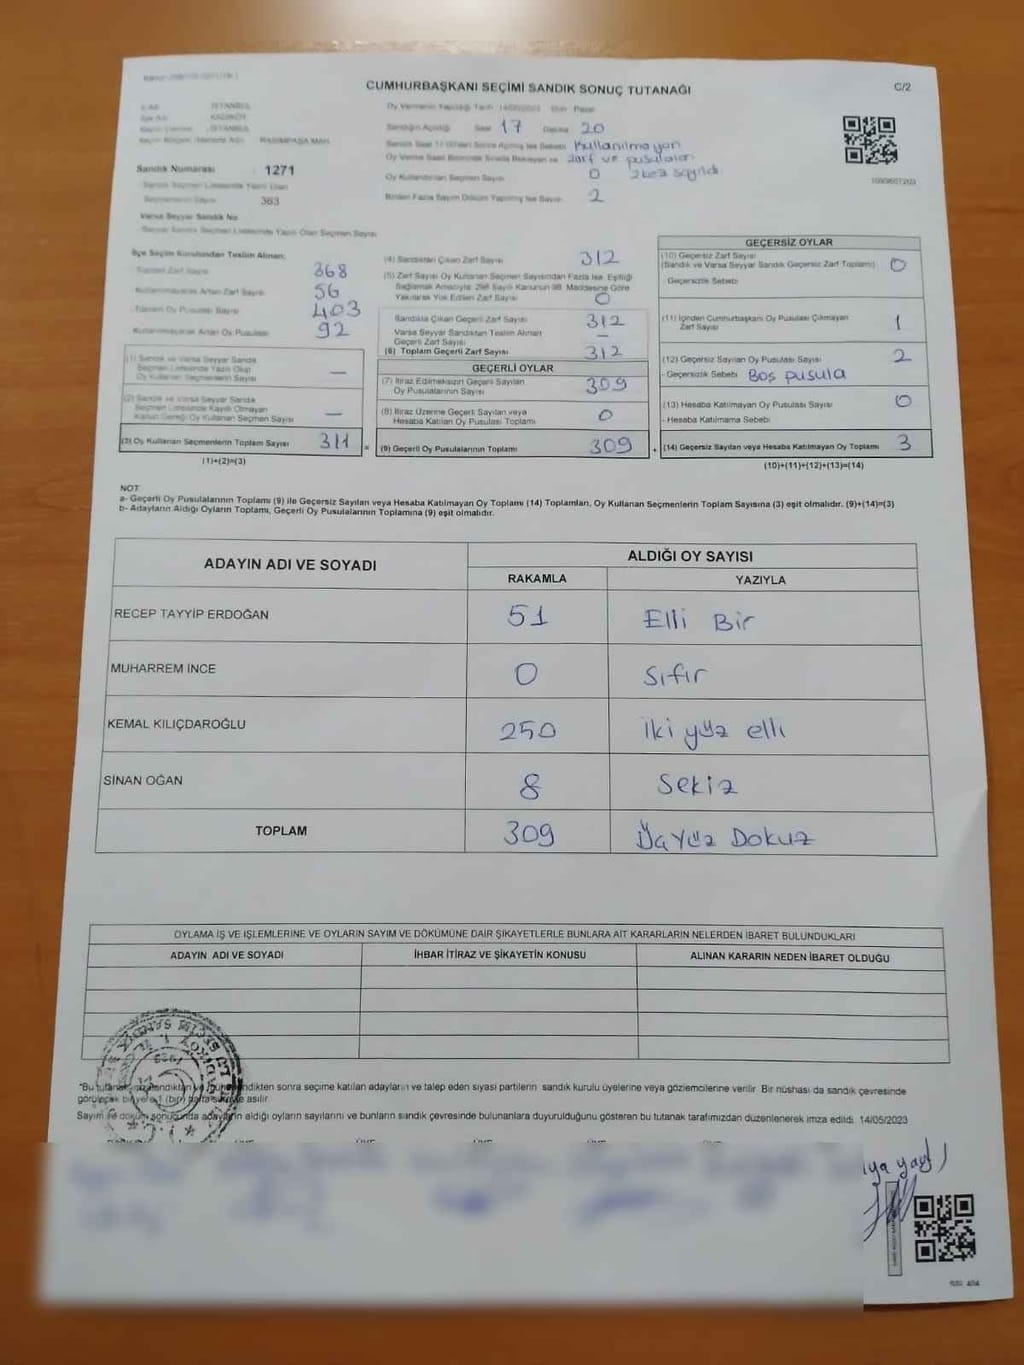 CUMHURBAŞKANI SEÇİMİ SANDIK SONUÇ TUTANAĞI
C/2
İSTANBUL
KADIKÖY
İSTANBUL
RASİMPAŞA MAH.
Sandık Numarası 1271
Sandık Seçmen Listesinde Yazılı Olan
Seçmenlerin Sayısı 363
Varsa Seyyar Sandık No
Seyyar Sandık Seçmen Listesinde Yazılı Olan Seçmen Sayısı
Oy Vermenin Yapıldığı Tarih 14/05/2023 Gün Pazar
Sandığın Açıldığı Saat 17 Dakika 20
Kullanılmayan
zarf ve pusulaları
2 kez sayıldı
Oy Kullandırılan Seçmen Sayısı 0
Birden Fazla Sayım Döküm Yapılmış İse Sayısı 2
İlçe Seçim Kurulundan Teslim Alınan:
Toplam Zarf Sayısı 368
Kullanılmayarak Artan Zarf Sayısı 56
Toplam Oy Pusulası Sayısı 403
Kullanılmayarak Artan Oy Pusulası 92
(1) Sandık ve Varsa Seyyar Sandık
Seçmen Listesinde Yazılı Olup
Oy Kullanan Seçmenlerin Sayısı —
(2) Sandık ve Varsa Seyyar Sandık
Seçmen Listesinde Kayıtlı Olmayan
Kanun Gereği Oy Kullanan Seçmen Sayısı —
(3) Oy Kullanan Seçmenlerin Toplam Sayısı 311 =
(1)+(2)=(3)
(4) Sandıktan Çıkan Zarf Sayısı 312
(5) Zarf Sayısı Oy Kullanan Seçmen Sayısından Fazla İse, Eşitliği
Sağlamak Amacıyla 298 Sayılı Kanunun 98. Maddesine Göre
Yakılarak Yok Edilen Zarf Sayısı 0
Sandıkta Çıkan Geçerli Zarf Sayısı 312
Varsa Seyyar Sandıktan Teslim Alınan
Geçerli Zarf Sayısı —
(6) Toplam Geçerli Zarf Sayısı 312
GEÇERLİ OYLAR
(7) İtiraz Edilmeksizin Geçerli Sayılan
Oy Pusulalarının Sayısı 309
(8) İtiraz Üzerine Geçerli Sayılan veya
Hesaba Katılan Oy Pusulası Toplamı 0
(9) Geçerli Oy Pusulalarının Toplamı 309 +
GEÇERSİZ OYLAR
(10) Geçersiz Zarf Sayısı
(Sandık ve Varsa Seyyar Sandık Geçersiz Zarf Toplamı) 0
- Geçersizlik Sebebi
(11) İçinden Cumhurbaşkanı Oy Pusulası Çıkmayan
Zarf Sayısı 1
(12) Geçersiz Sayılan Oy Pusulası Sayısı 2
- Geçersizlik Sebebi Boş pusula
(13) Hesaba Katılmayan Oy Pusulası Sayısı 0
- Hesaba Katılmama Sebebi
(14) Geçersiz Sayılan veya Hesaba Katılmayan Oy Toplamı 3
(10)+(11)+(12)+(13)=(14)
NOT
a- Geçerli Oy Pusulalarının Toplamı (9) ile Geçersiz Sayılan veya Hesaba Katılmayan Oy Toplamı (14) Toplamları, Oy Kullanan Seçmenlerin Toplam Sayısına (3) eşit olmalıdır. (9)+(14)=(3)
b- Adayların Aldığı Oyların Toplamı, Geçerli Oy Pusulalarının Toplamına (9) eşit olmalıdır.
ADAYIN ADI VE SOYADI ALDIĞI OY SAYISI
RAKAMLA YAZIYLA
RECEP TAYYİP ERDOĞAN 51 Elli Bir
MUHARREM İNCE 0 Sıfır
KEMAL KILIÇDAROĞLU 250 İki yüz elli
SİNAN OĞAN 8 Sekiz
TOPLAM 309 Üçyüz Dokuz
OYLAMA İŞ VE İŞLEMLERİNE VE OYLARIN SAYIM VE DÖKÜMÜNE DAİR ŞİKAYETLERLE BUNLARA AİT KARARLARIN NELERDEN İBARET BULUNDUKLARI
ADAYIN ADI VE SOYADI İHBAR İTİRAZ VE ŞİKAYETİN KONUSU ALINAN KARARIN NEDEN İBARET OLDUĞU
sonra seçime katılan adayların ve talep eden siyasi partilerin sandık kurulu üyelerine veya gözlemcilerine verilir. Bir nüshası da sandık çevresinde
görülecek bir yere 1 (bir) hafta süreyle asılır.
Sayım ve döküm sonucunda adayların aldığı oyların sayılarını ve bunların sandık çevresinde bulunanlara duyurulduğunu gösteren bu tutanak tarafımızdan düzenlenerek imza edildi. 14/05/2023